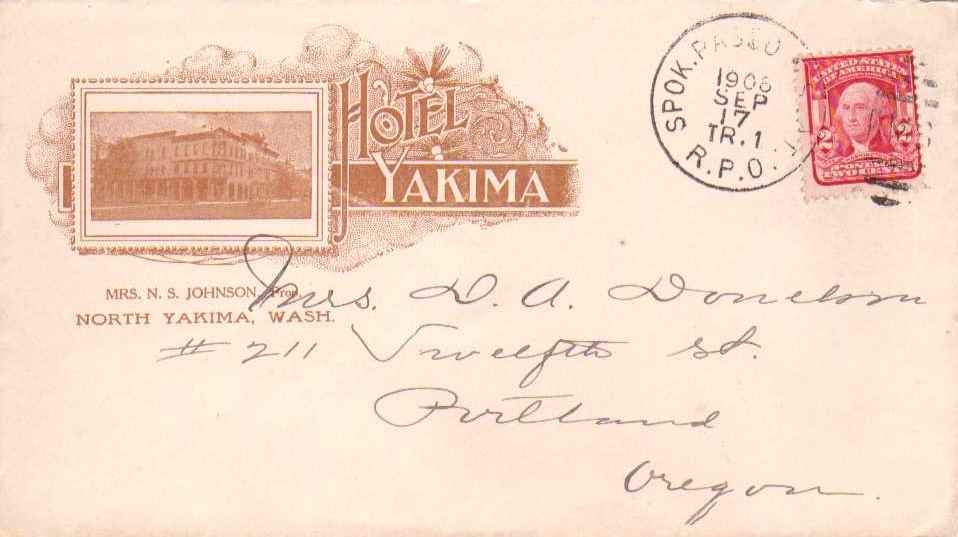 HOTEL
YAKIMA
MRS. N. S. JOHNSON, Prop.
NORTH YAKIMA, WASH.
SPOK.
1906
SEP
17
TR. 1
R.P.O.
UNITED STATES
OF AMERICA
2 2
TWO CENTS
Mrs. D. A. Donelson
# 211 Twelfth St.
Portland
Oregon.